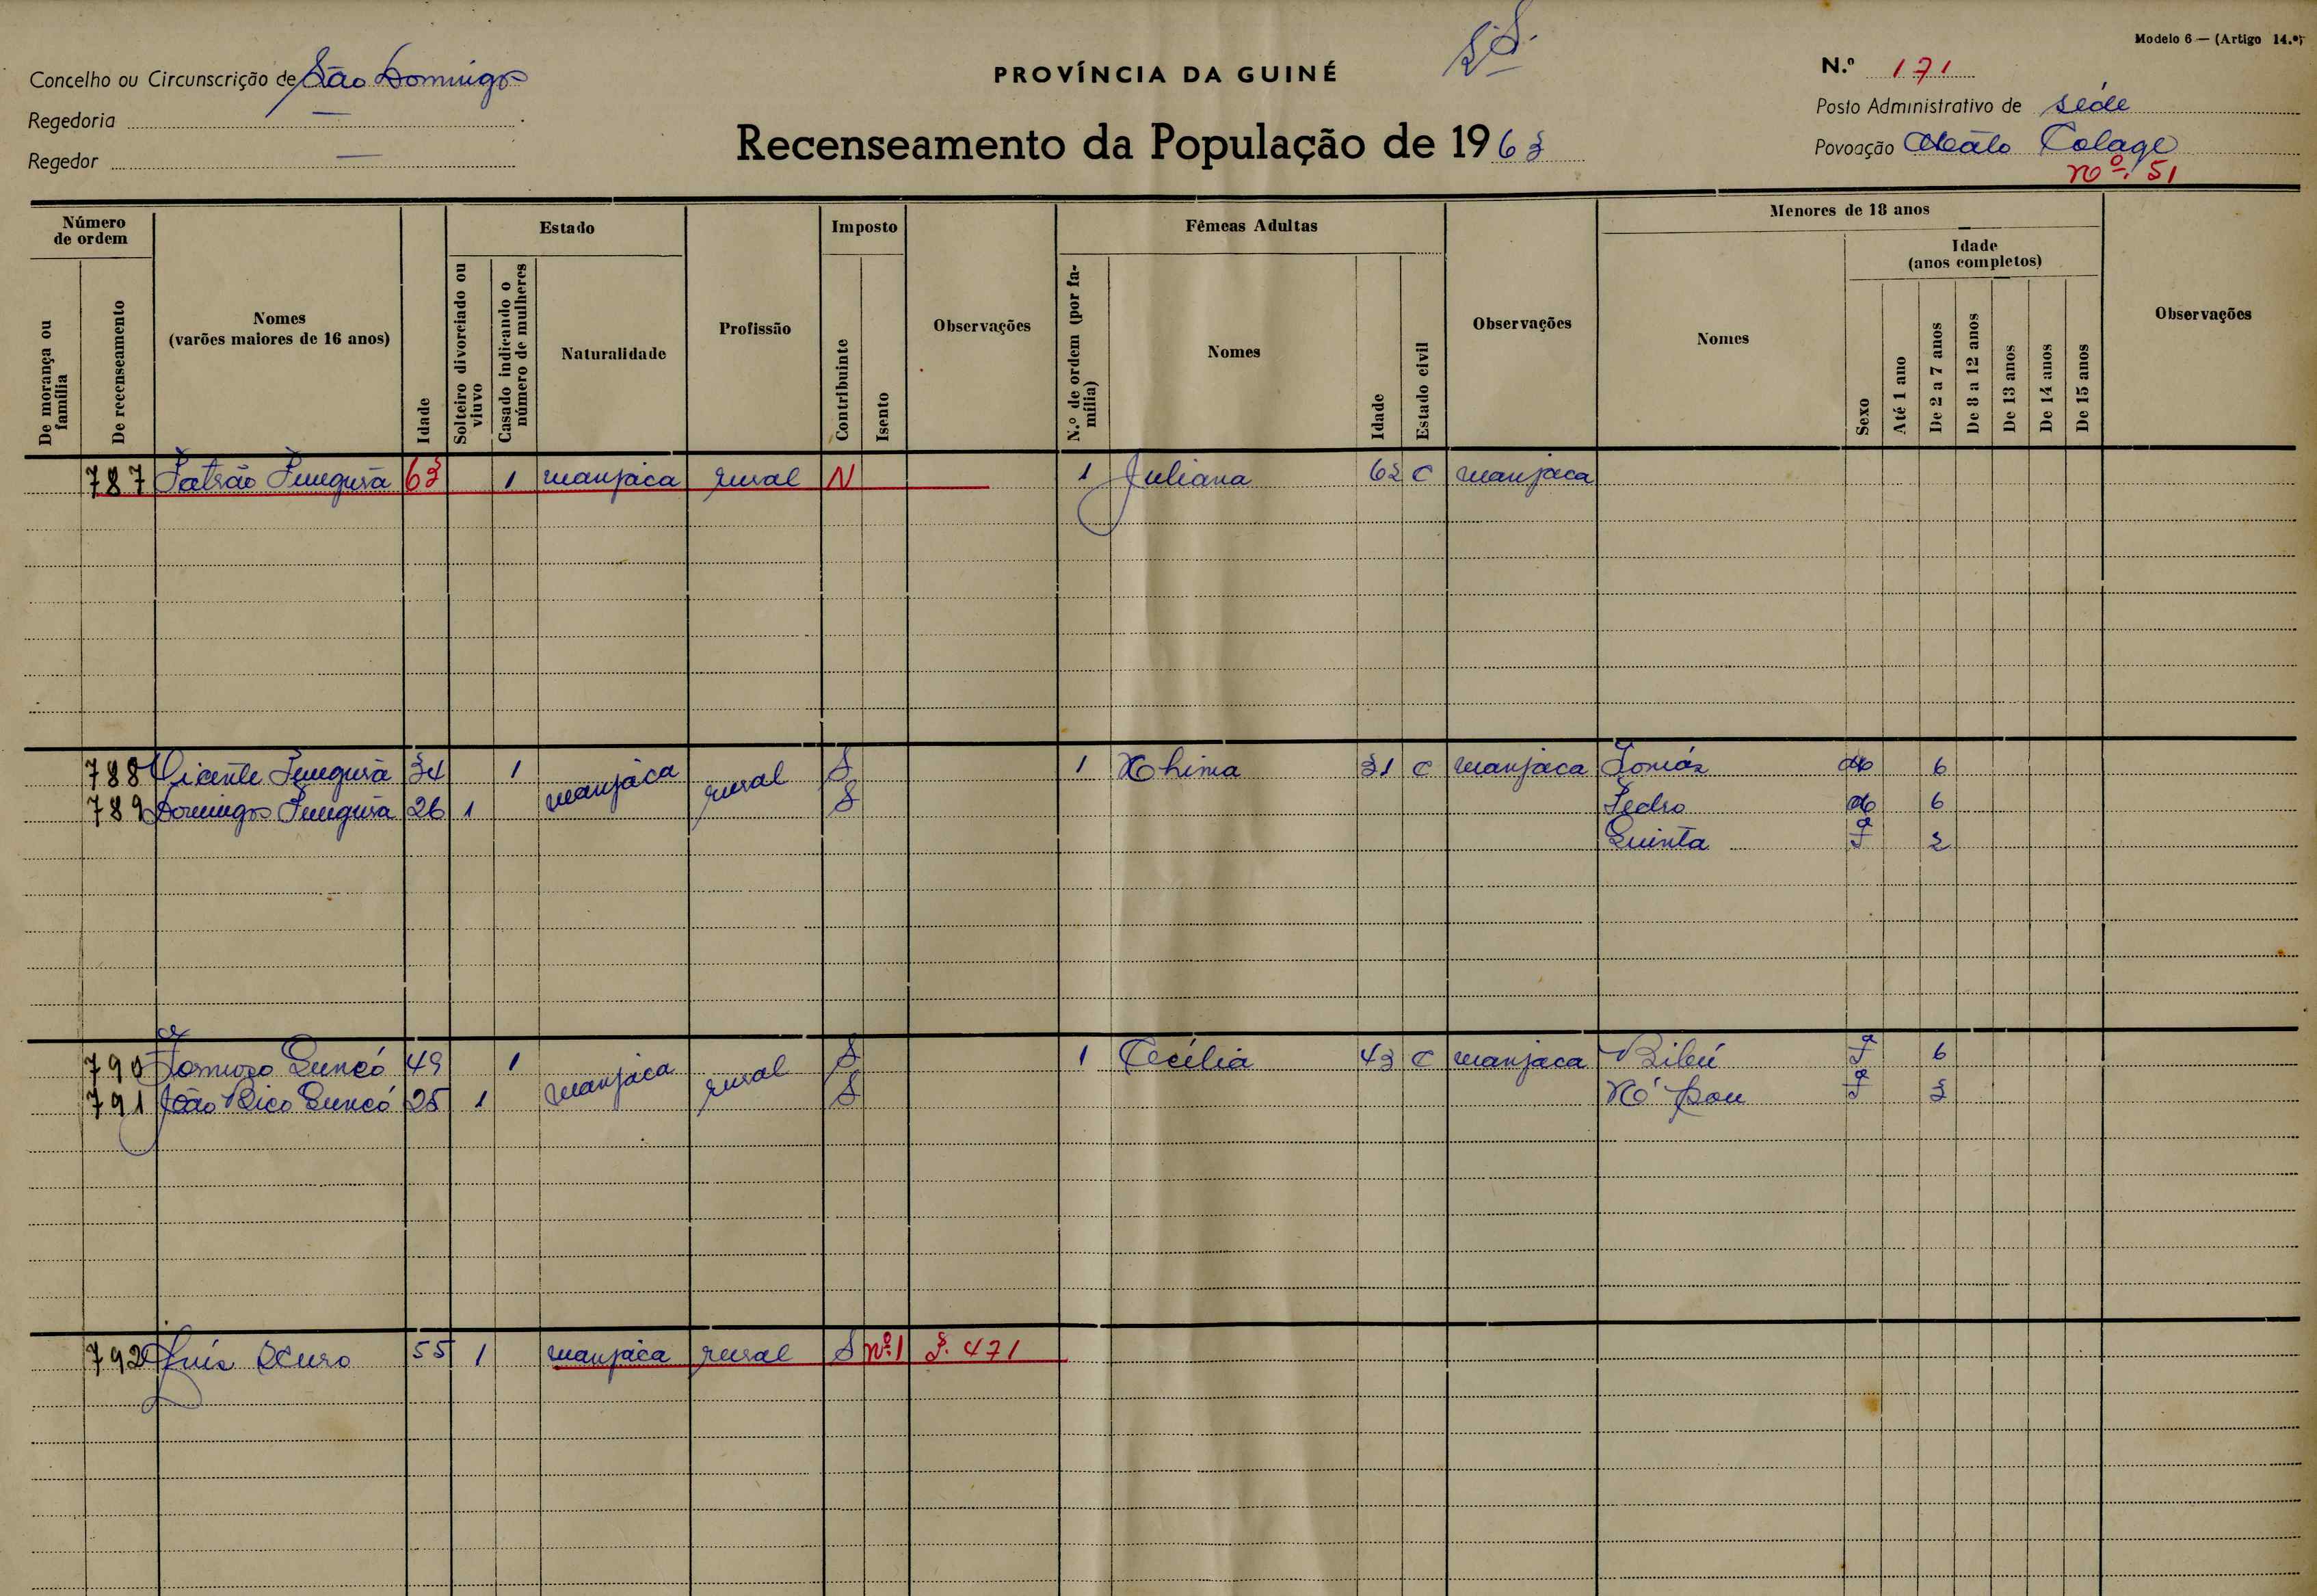 Modelo 6 — (Artigo 14.º)
Concelho ou Circunscrição de São Domingos
PROVÍNCIA DA GUINÉ
N.º 171
Regedoria —
Posto Administrativo de séde
Regedor —
Recenseamento da População de 1963
Povoação Mato
nº. 51
Número de ordem
De morança ou família
De recenseamento
Nomes
(varões maiores de 16 anos)
Idade
Estado
Solteiro divorciado ou viuvo
Casado indicando o número de mulheres
Naturalidade
Profissão
Imposto
Contribuinte
Isento
Observações
Fêmeas Adultas
N.º de ordem (por família)
Nomes
Idade
Estado civil
Observações
Menores de 18 anos
Nomes
Sexo
Idade
(anos completos)
Até 1 ano
De 2 a 7 anos
De 8 a 12 anos
De 13 anos
De 14 anos
De 15 anos
Observações
787 63 1 manjaca rural N 1 Juliana 62 C manjaca
788 Vicente 34 1 manjaca rural S 1 31 C manjaca Tomás M 6
789 Domingos 26 1 S Pedro M 6
Quinta F 2
790 Formoso 49 1 manjaca rural S 1 Cecília 43 C manjaca F 6
791 João 25 1 S F 3
792 Luis 55 1 manjaca rural S nº1 F. 471